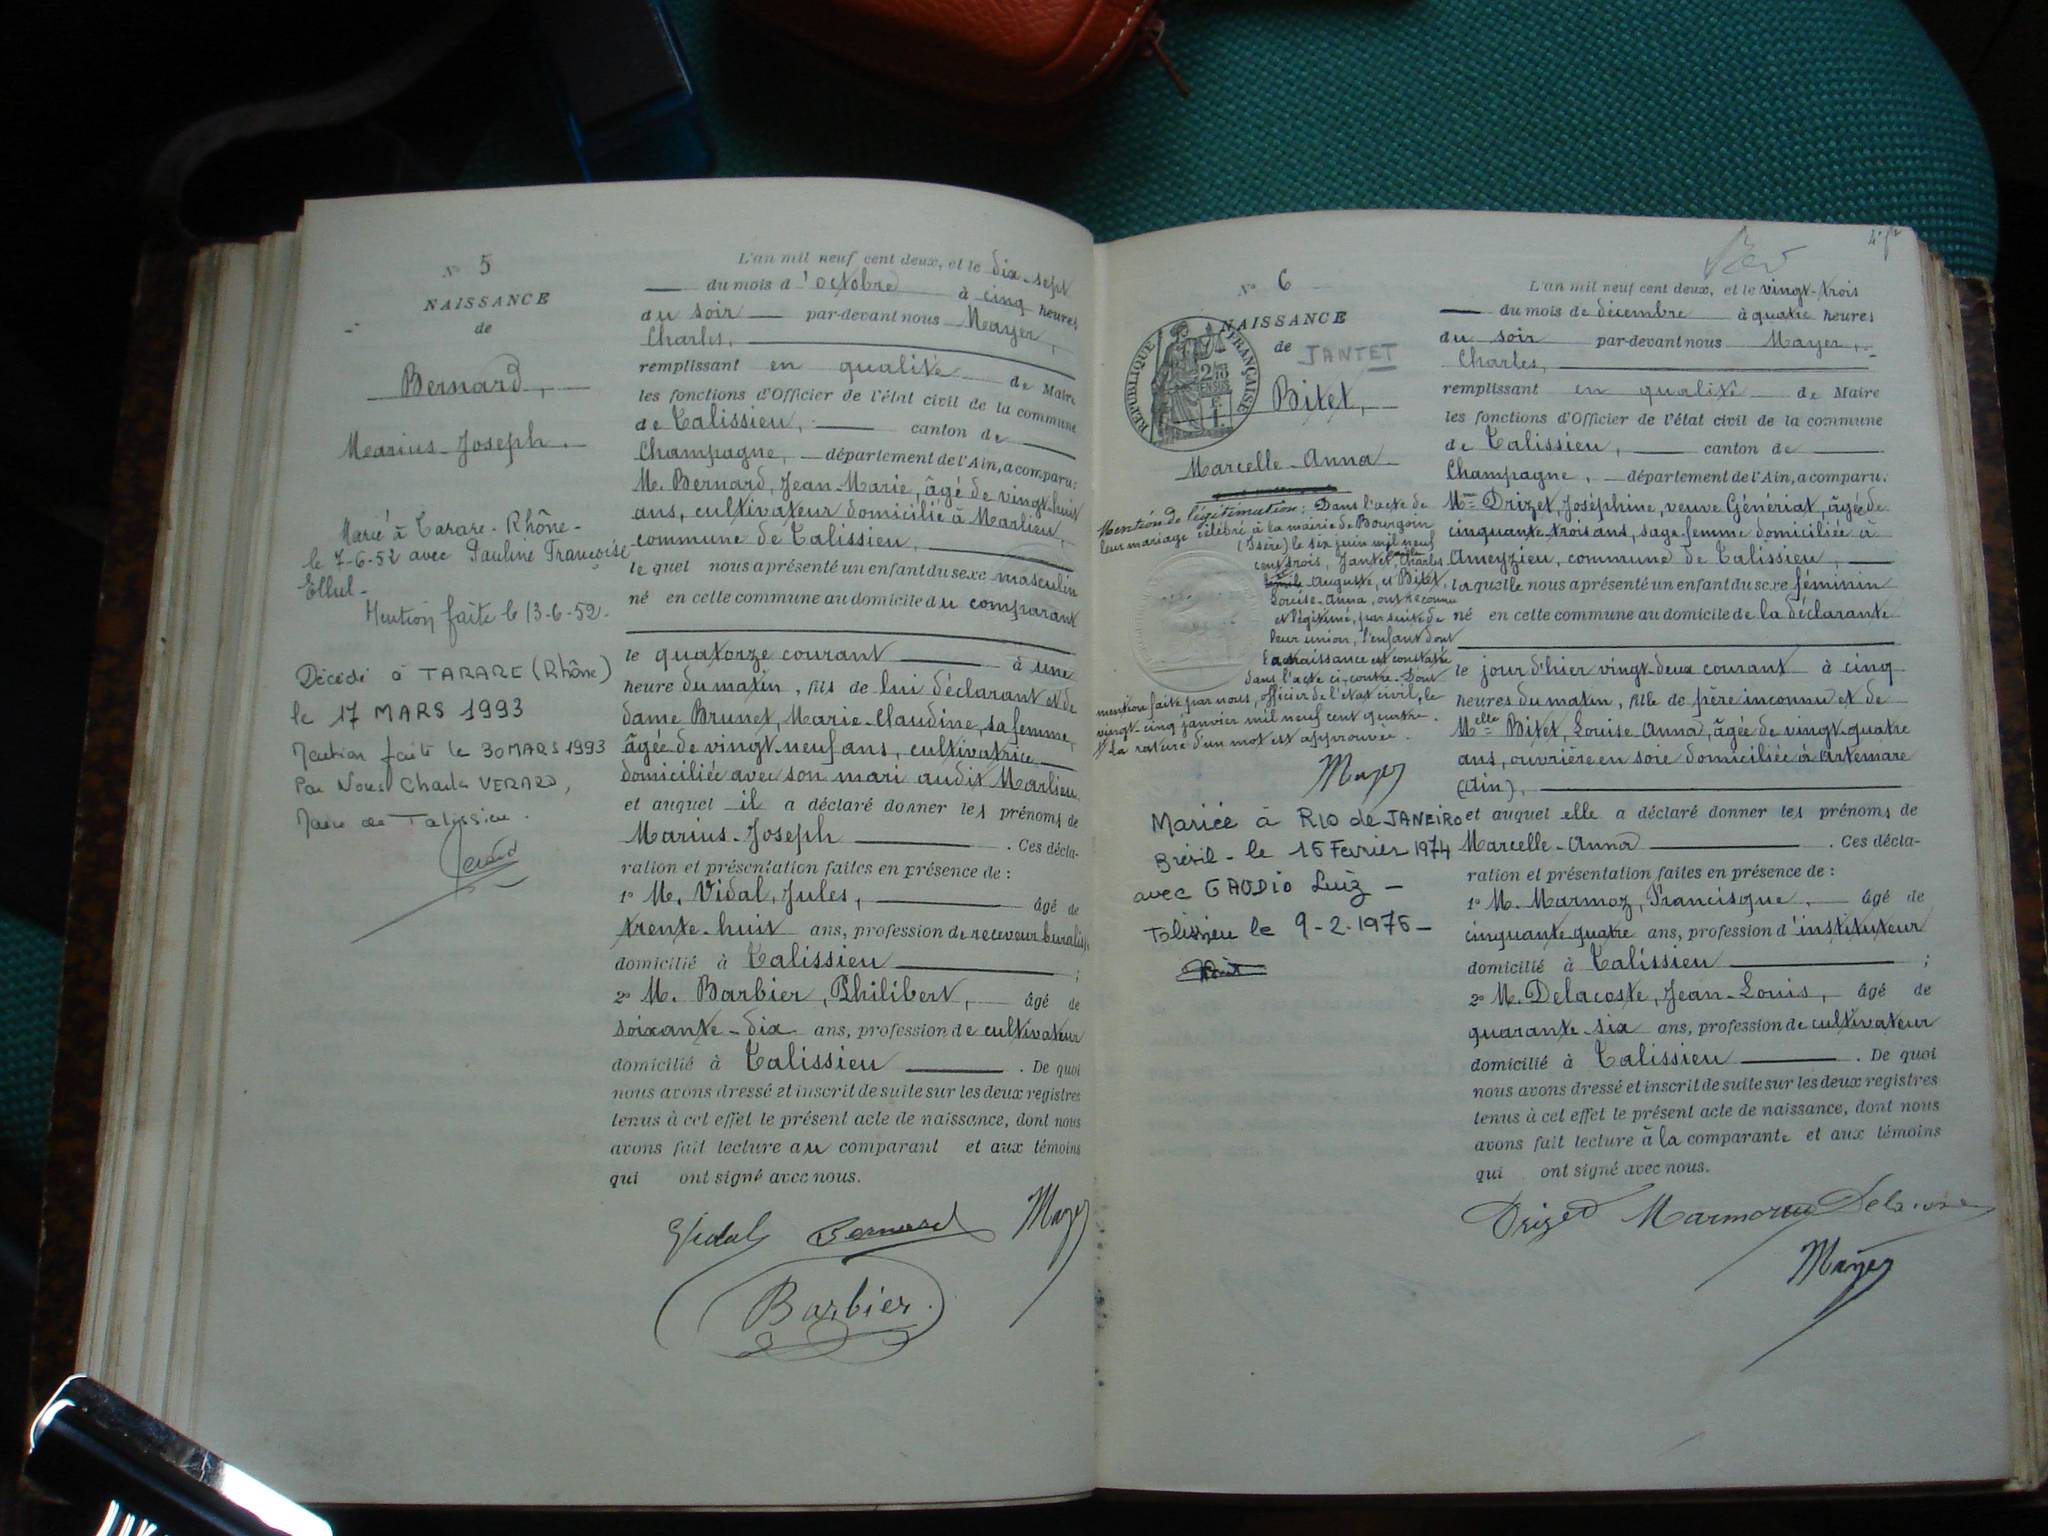 N° 5
NAISSANCE
de
Bernard,
Marius-Joseph.
Marié à Tarare-Rhône-
le 7-6-52 avec Pauline Françoise
Mention faite le 13-6-52.
Décédé à TARARE (Rhône)
le 17 MARS 1993
Mention faite le 30 MARS 1993
Par Nous Charles VERARD,
Maire de Talissieu.
L'an mil neuf cent deux, et le dix-sept
du mois d'octobre à cinq heures
du soir par-devant nous Mayer,
Charles,
remplissant en qualité de Maire
les fonctions d'Officier de l'état civil de la commune
de Talissieu, canton de
Champagne, département de l'Ain, a comparu:
M. Bernard, Jean-Marie, âgé de vingt-huit
ans, cultivateur domicilié à Marlieu,
commune de Talissieu,
le quel nous a présenté un enfant du sexe masculin
né en cette commune au domicile du comparant
le quatorze courant à une
heure du matin, fils de lui déclarant et de
dame Brunet, Marie-Claudine, sa femme,
âgée de vingt-neuf ans, cultivatrice
domiciliée avec son mari audit Marlieu,
et auquel il a déclaré donner les prénoms de
Marius-Joseph. Ces décla-
ration et présentation faites en présence de :
1° M. Vidal, Jules, âgé de
trente-huit ans, profession de receveur buraliste
domicilié à Talissieu ;
2° M. Barbier, Philibert, âgé de
soixante-dix ans, profession de cultivateur
domicilié à Talissieu. De quoi
nous avons dressé et inscrit de suite sur les deux registres
tenus à cet effet le présent acte de naissance, dont nous
avons fait lecture au comparant et aux témoins
qui ont signé avec nous.
Vidal Bernard Mayer
Barbier
N° 6
NAISSANCE
de JANTET
RÉPUBLIQUE FRANÇAISE
Bitet,
Marcelle-Anna
Mention de légitimation: Dans l'acte de
leur mariage célébré à la mairie de Bourgoin
(Isère) le six juin mil neuf
cent trois, Jantet, Charles
Auguste, et Bitet,
Louise-Anna, ont reconnu
et légitimé, par suite de
leur union, l'enfant dont
la naissance est constatée
dans l'acte ci-contre. Dont
mention faite par nous, officier de l'état civil, le
vingt-cinq janvier mil neuf cent quatre.
La rature d'un mot est approuvée.
Mayer
Mariée à RIO de JANEIRO
Brésil - le 15 Fevrier 1974
avec GAUDIO Luiz -
Talissieu le 9-2-1976 -
L'an mil neuf cent deux, et le vingt-trois
du mois de décembre à quatre heures
du soir par-devant nous Mayer,
Charles,
remplissant en qualité de Maire
les fonctions d'Officier de l'état civil de la commune
de Talissieu, canton de
Champagne, département de l'Ain, a comparu:
Mme Drizet, Joséphine, veuve Génériat, âgée de
cinquante-trois ans, sage-femme domiciliée à
Ameyzieu, commune de Talissieu,
laquelle nous a présenté un enfant du sexe féminin
né en cette commune au domicile de la déclarante
le jour d'hier vingt-deux courant à cinq
heures du matin, fille de père inconnu et de
Melle Bitet, Louise Anna, âgée de vingt-quatre
ans, ouvrière en soie domiciliée à Artemare
(Ain),
et auquel elle a déclaré donner les prénoms de
Marcelle-Anna. Ces décla-
ration et présentation faites en présence de :
1° M. Marmoz, Francisque, âgé de
cinquante-quatre ans, profession d'instituteur
domicilié à Talissieu ;
2° M. Delacoste, Jean-Louis, âgé de
quarante-six ans, profession de cultivateur
domicilié à Talissieu. De quoi
nous avons dressé et inscrit de suite sur les deux registres
tenus à cet effet le présent acte de naissance, dont nous
avons fait lecture à la comparante et aux témoins
qui ont signé avec nous.
Drizet Marmoz Delacoste
Mayer